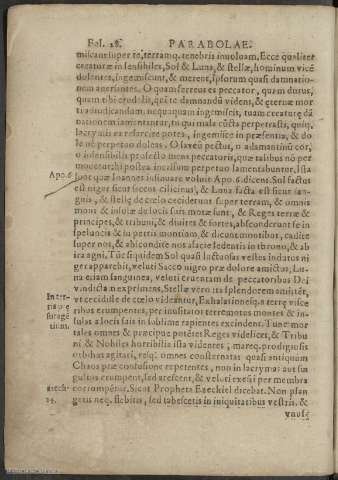 Fol. 28. PARABOLAE.
miscant super te, terramq. tenebris inuoluam. Ecce qualiter
creaturæ insensibiles, Sol & Luna, & stellæ, hominum vicē
dolentes, ingemiscunt, & merent, ipsorum quasi damnatio-
nem auersantes. O quam ferreus es peccator, quam durus,
quam tibi crudelis, qui te damnandū videns, & eternæ mor
ti adiudicandum, nequaquam ingemiscis, tuam creaturę dā
nationem lamentantur, tu qui mala cūcta perpetrasti, quiq.
lacrymis ea resarcire potes, ingemisce in præsentia, & do
le nè perpetuo doleas. O saxeū pectus, o adamantinū cor,
o insensibilis profecto mens peccatoris, quæ talibus nō per
mouetur: hi postea incassum perpetuo lamentabuntur, ista
Apo.6
sunt quæ Ioannes insinuare voluit Apo. 6. dicens. Sol factus
est niger sicut saccus cilicinus, & Luna facta est sicut san-
guis, & stellę de cœlo ceciderunt super terram, & omnis
mons & insulæ de locis suis motæ sunt, & Reges terræ &
principes, & tribuni, & diuites & fortes, absconderunt se in
speluncis & in petris montium, & dicunt montibus, cadite
super nos, & abscondite nos à facie sedentis in throno, & ab
ira agni. Tūc siquidem Sol quasi luctuosas vestes indutus ni
ger apparebit, veluti Sacco nigro præ dolore amictus, Lu-
na etiam sanguinea, veluti cruentam de peccatoribus Dei
vindictam exprimens, Stellæ vero ita splendorem amittēt,
vt cecidisse de cœlo videantur, Exhalationeiq. è terrę visce
ribus erumpentes, per inusitatos terremotos montes & in-
sulas à locis suis in sublime rapientes excindent. Tunc mor
tales omnes & præcipuè potētes Reges videlicet, & Tribu
ni & Nobiles horribilia ista videntes; mareq. prodigiosis
orbibus agitari, relq. omnes consternatas quasi antiquum
Chaos præ confusione repetentes, non in lacrymas aut sin
gultus erumpent, sed arescent, & veluti exossi per membra
corrumpentur, Sicut Propheta Ezechiel dicebat. Non plan
24.
getis neq. flebitis, sed tabescetis in iniquitatibus vestris, &
vnusq